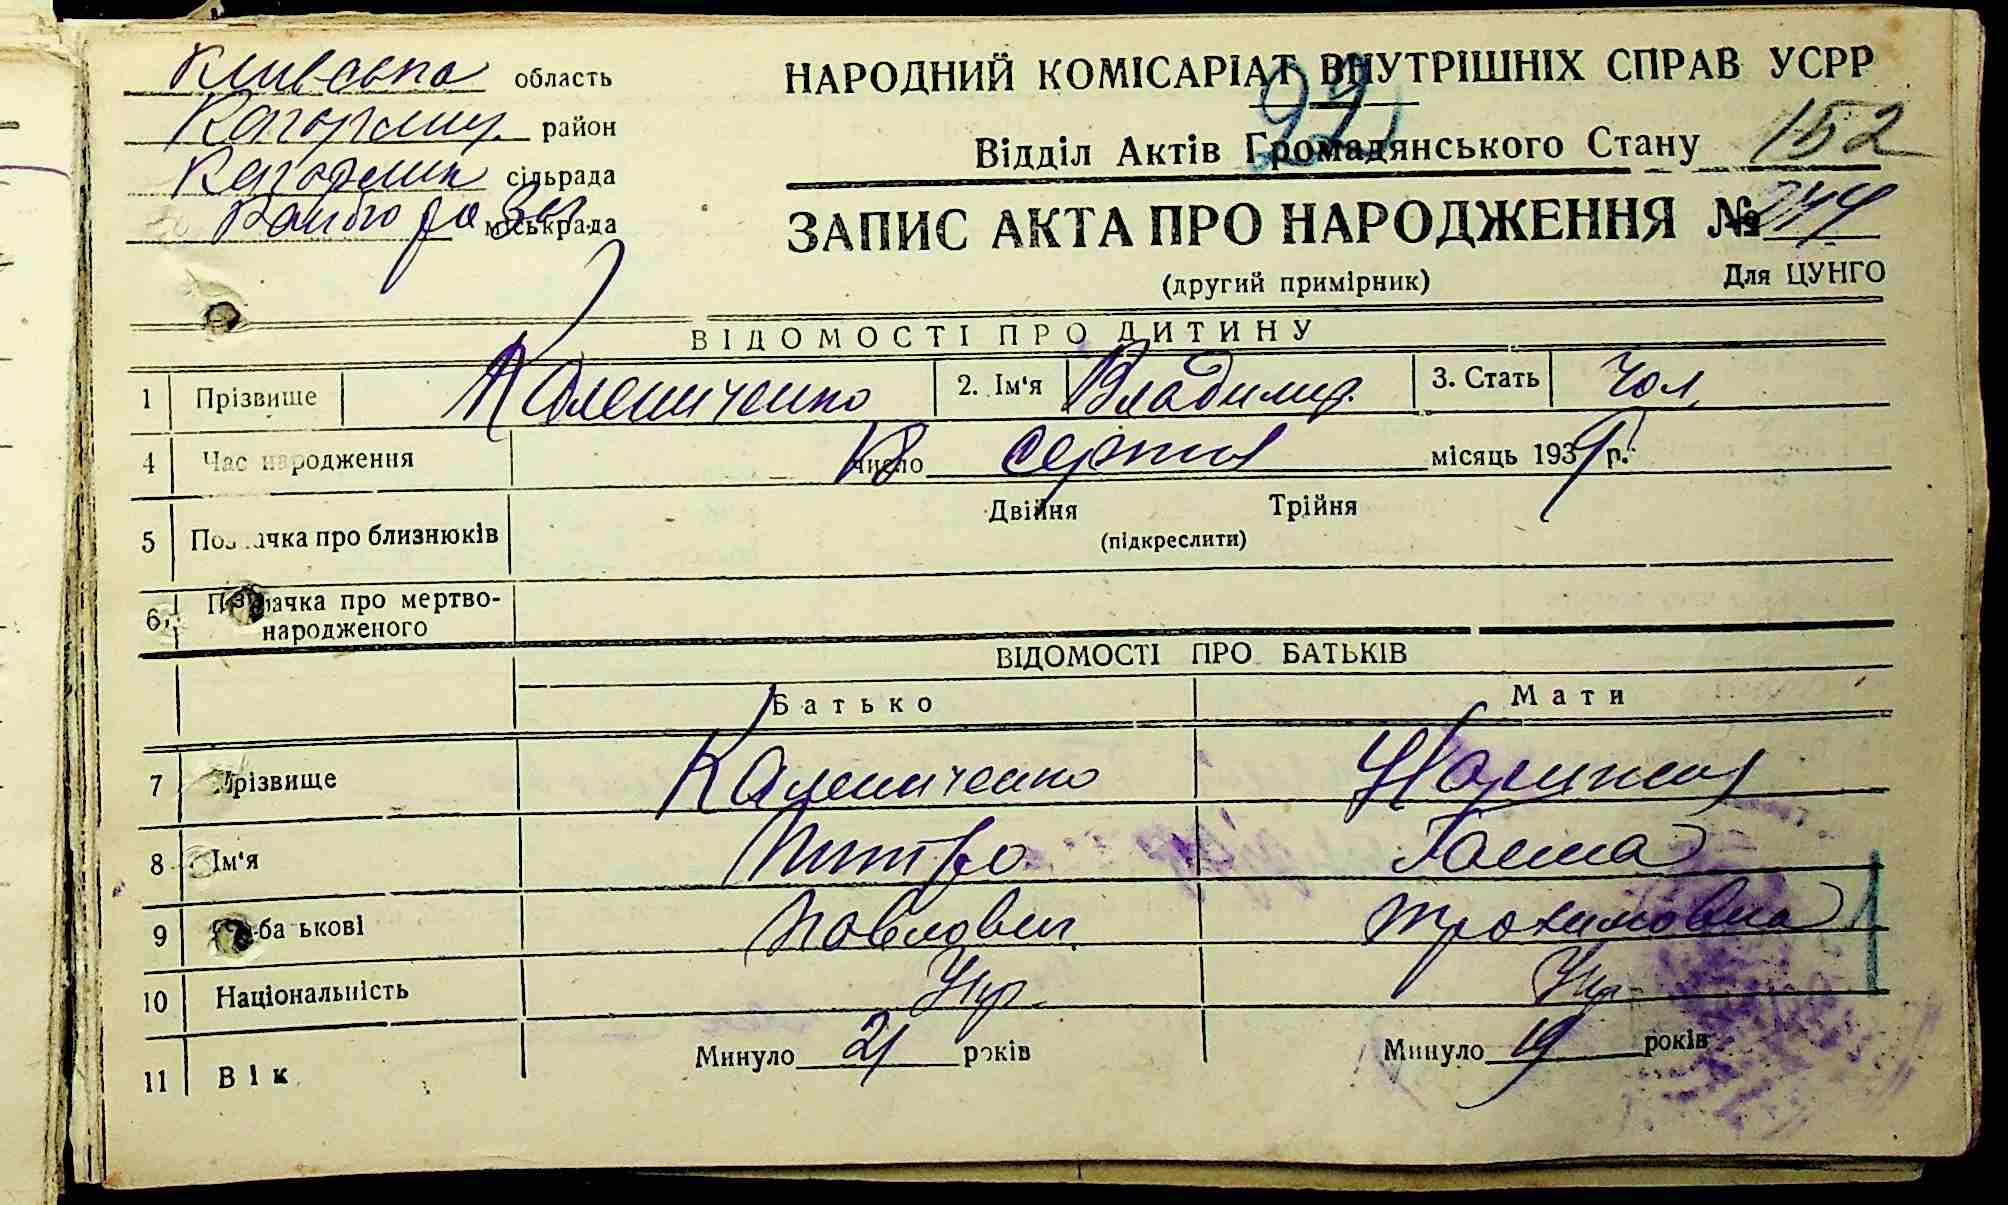 Київська область
Кагорлиц. район
Кагорлик сільрада
міськрада
НАРОДНИЙ КОМІСАРІАТ ВНУТРІШНІХ СПРАВ УСРР
Відділ Актів Громадянського Стану 152
ЗАПИС АКТА ПРО НАРОДЖЕННЯ № 244
(другий примірник) Для ЦУНГО
ВІДОМОСТІ ПРО ДИТИНУ
1 Прізвище Калениченко 2. Ім'я Владимир. 3. Стать Чол.
4 Час народження 18 число серпня місяць 1939 р.
Двійня Трійня
5 Позначка про близнюків (підкреслити)
6 Позначка про мертво-
народженого
ВІДОМОСТІ ПРО БАТЬКІВ
Батько Мати
7 Прізвище Калениченко
8 Ім'я Митро Ганна
9 По-батькові Павлович Трохимовна
10 Національність Укр. Укр.
11 Вік Минуло 21 років Минуло 19 років